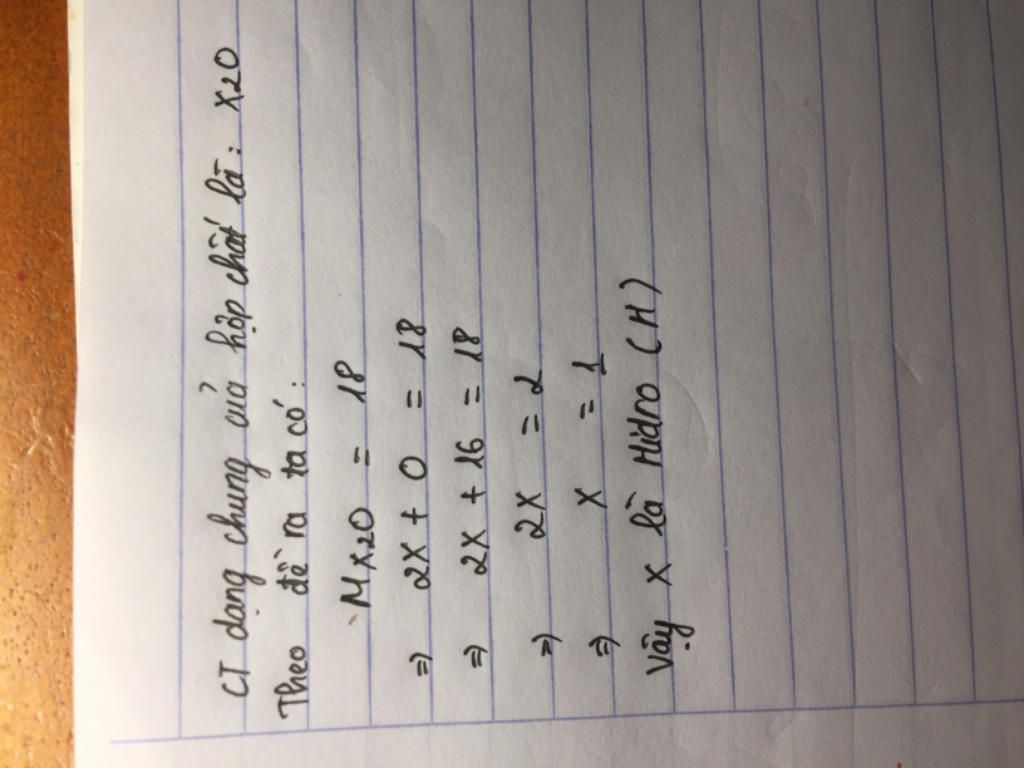 CT dạng chung của hợp chất là: X2O
Theo đề ra ta có:
MX2O = 18
=) 2X + O = 18
=) 2X + 16 = 18
=) 2X = 2
=) X = 1
Vậy X là Hidro (H)